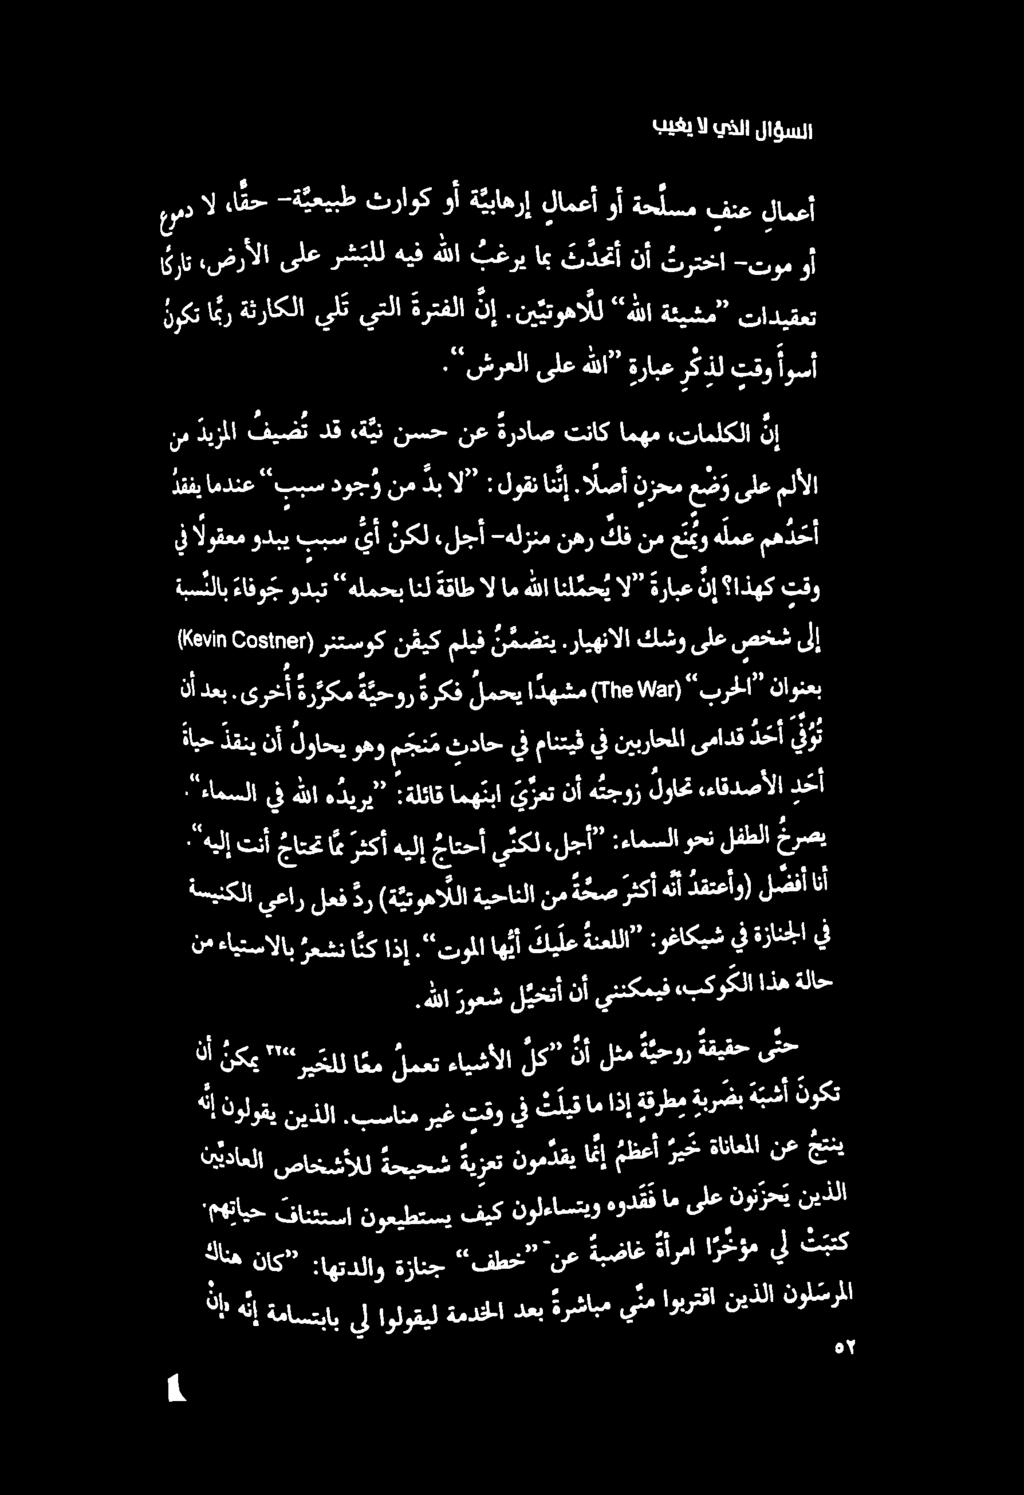 السؤال الذي لا يغيب
أعمالِ عنفٍ مسلَّحة أو أعمالٍ إرهابيَّة أو كوارث طبيعيَّة- حقًّا، لا دموع
أو موت- اخترتُ أن أتحدَّثَ بما يرغبُ الله فيه للبَشر على الأرض، تاركًا
تعقيدات ”مشيئة الله“ للَّاهوتيّين. إنَّ الفترةَ التي تَلي الكارثة ربَّما تكونُ
أسوأَ وقتٍ لذِكْرِ عبارةِ ”الله على العرش“.
إنَّ الكلمات، مهما كانت صادرةً عن حسن نيَّة، قد تُضيفُ المزيدَ من
الألم على وَضعٍ محزنٍ أصلًا. إنَّنا نقول: ”لا بدَّ من وُجود سببٍ“ عندما يفقدُ
أحَدُهم عملَه ويُمنَع من فكِّ رهن منزله- أجل، لكنْ أيُّ سببٍ يبدو معقولًا في
وقتٍ كهذا؟ إنَّ عبارةَ ”لا يُحمّلنا الله ما لا طاقةَ لنا بحمله“ تبدو جَوفاءَ بالنّسبة
إلى شخصٍ على وشك الانهيار. يتضمَّنُ فيلم كيڤن كوستنر (Kevin Costner)
بعنوان ”الحرب“ (The War) مشهدًا يحملُ فكرةً روحيَّةً مكرَّرةً أُخرى. بعد أن
تُوُفِّيَ أحَدُ قدامى المحاربين في ڤيتنام في حادثِ مَنجَم وهو يحاولُ أن ينقذَ حياةَ
أحَدِ الأصدقاء، تحاولُ زوجتُه أن تعزّيَ ابنَهما قائلة: ”يريدُه الله في السماء“.
يصرخُ الطفل نحو السماء: ”أجل، لكنّي أحتاجُ إليه أكثرَ ممَّا تحتاجُ أنت إليه“.
أنا أفضّل (وأعتقدُ أنَّه أكثرُ صحَّةً من الناحية اللَّاهوتيَّة) ردَّ فعل راعي الكنيسة
في الجنازة في شيكاغو: ”اللعنةُ علَيكَ أيُّها الموت“. إذا كنَّا نشعرُ بالاستياء من
حالة هذا الكَوكب، فيمكنني أن أتخيَّل شعورَ الله.
حتَّى حقيقةٌ روحيَّةٌ مثل أنَّ ”كلَّ الأشياء تعملُ معًا للخَير“٢٢ يمكنُ أن
تكونَ أشبَهَ بضَربةِ مِطرقةٍ إذا ما قيلَتْ في وقتٍ غير مناسب. الذين يقولون إنَّه
ينتجُ عن المعاناة خَيرٌ أعظمُ إنَّما يقدّمون تعزيةً شحيحةً للأشخاص العاديّين
الذين يَحزَنون على ما فَقَدوه ويتساءلون كيف يستطيعون استئنافَ حياتِهم.
كتبَتْ لي مؤخَّرًا امرأةٌ غاضبةٌ عن ”خطف“ جنازة والدتها: ”كان هناك
المرسَلون الذين اقتربوا منّي مباشرةً بعد الخدمة ليقولوا لي بابتسامة إنَّه «إنْ
٥٢